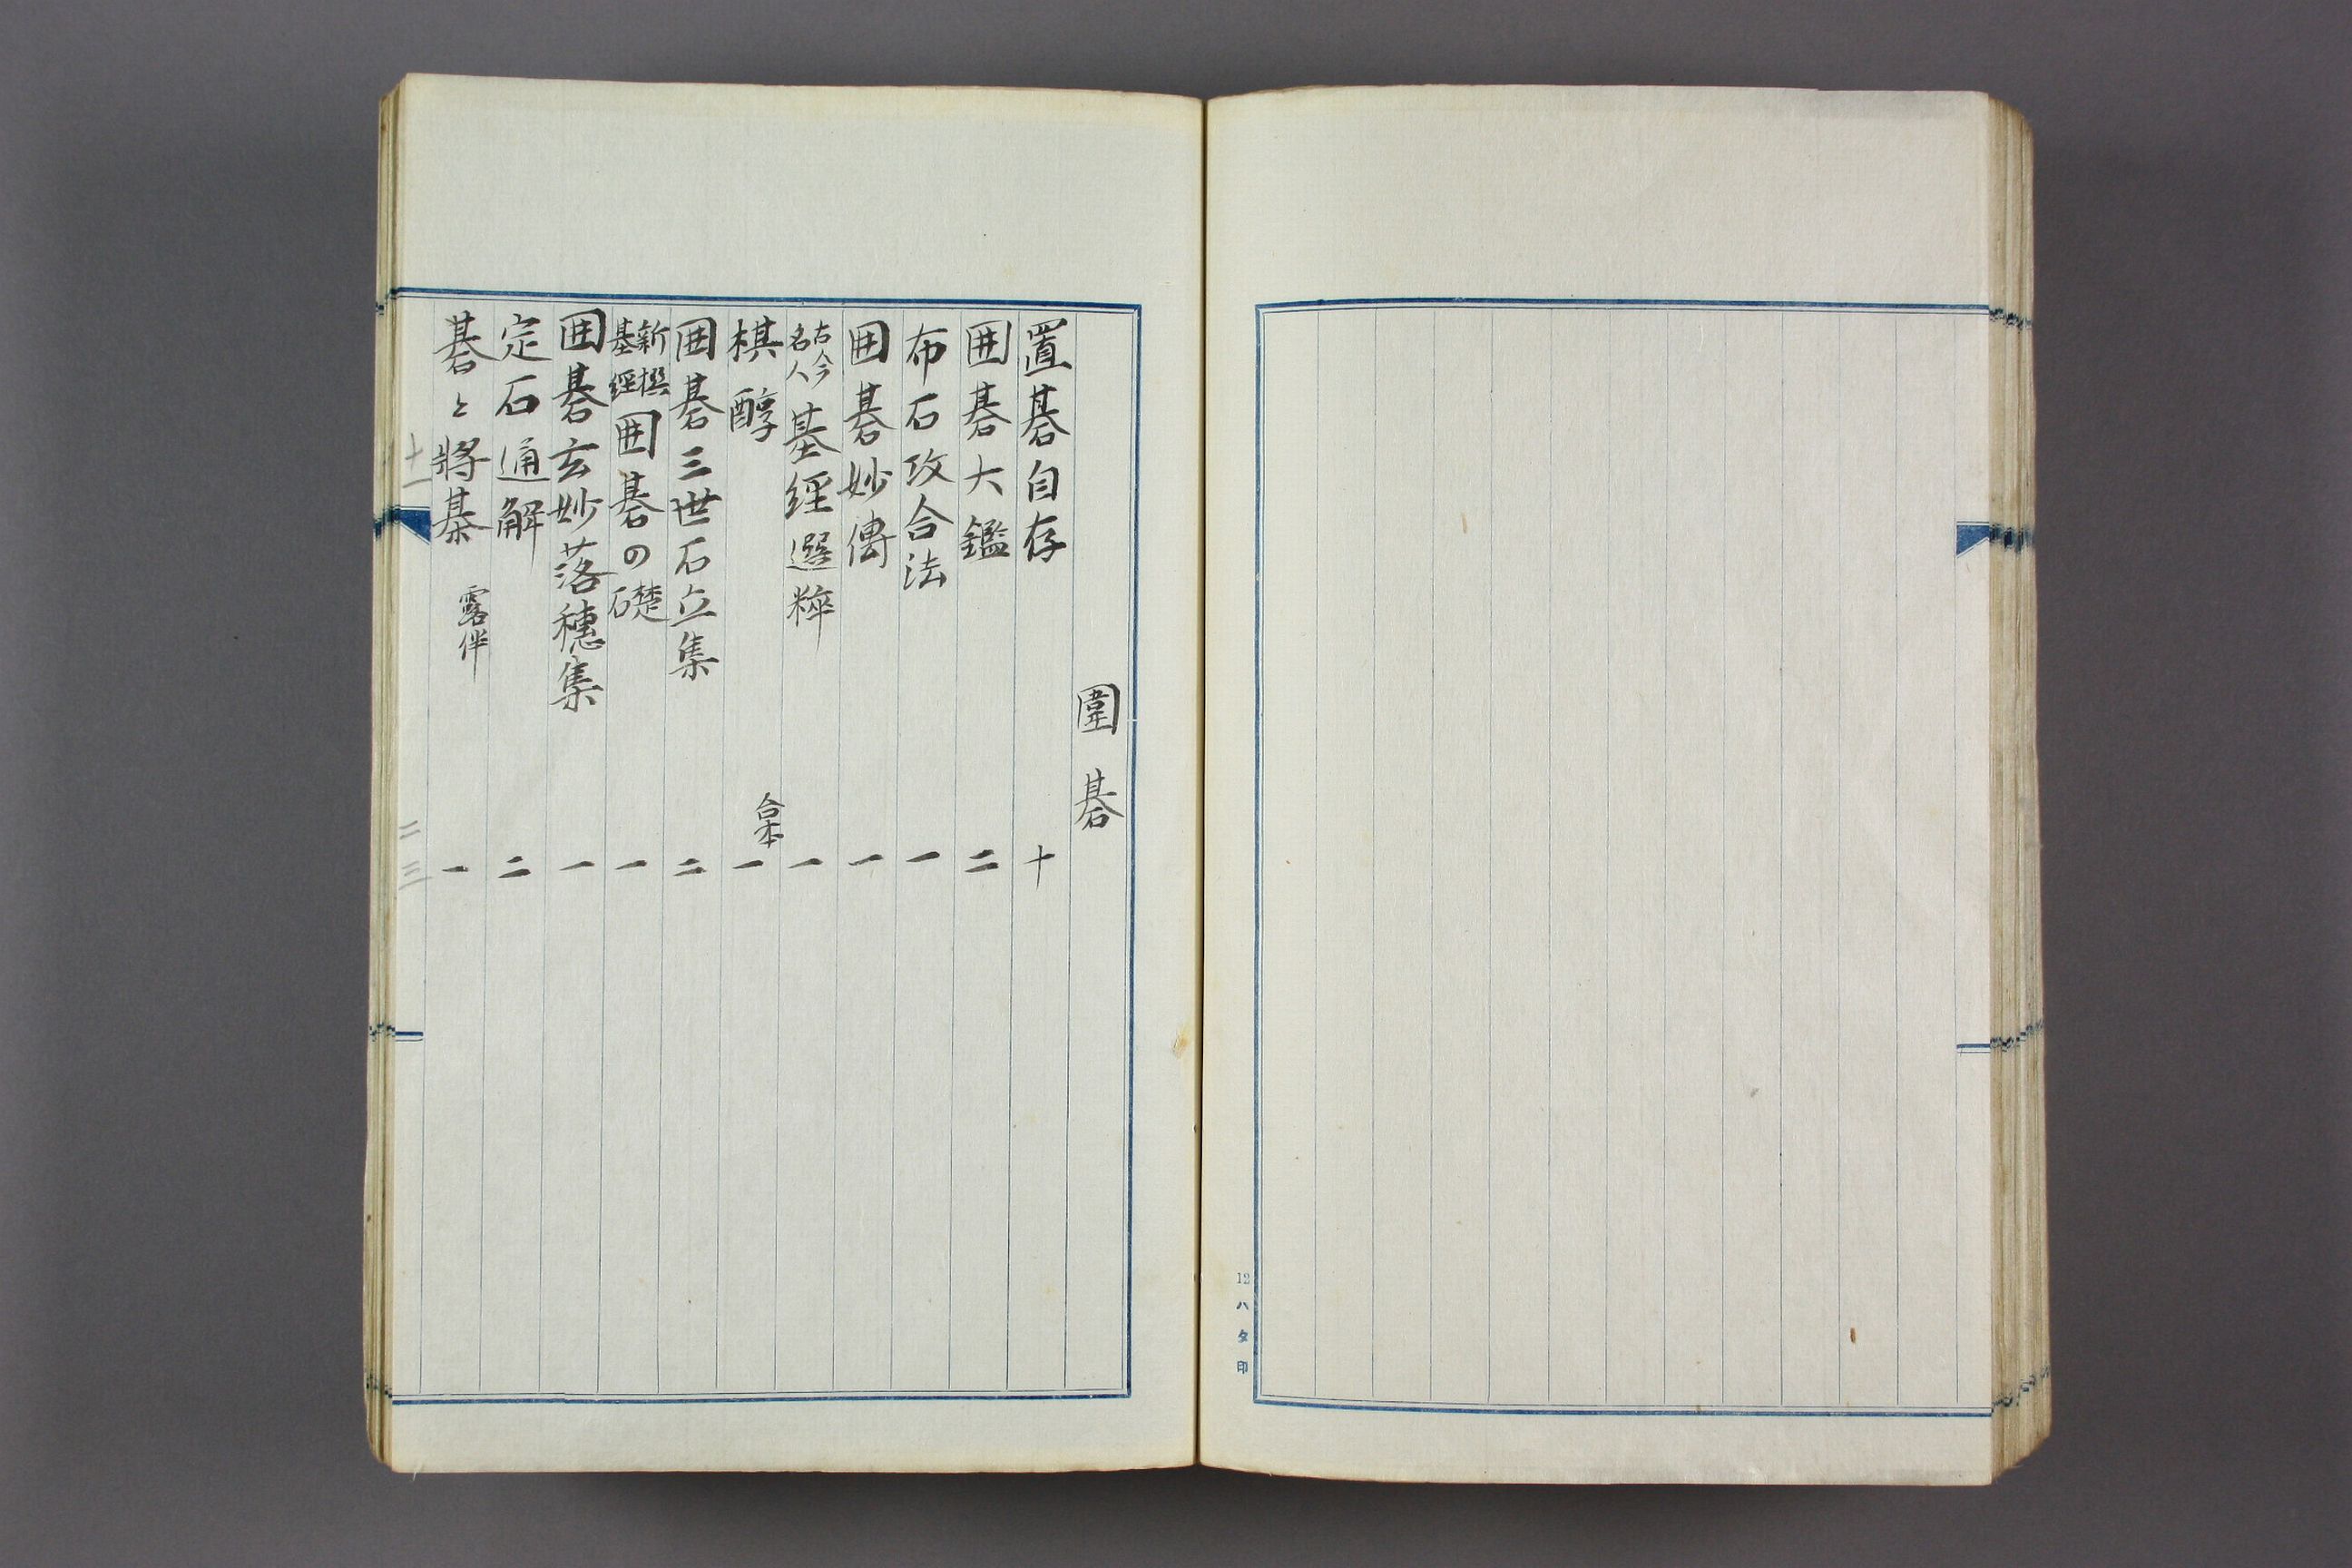 12ハタ印
圍碁
置碁自存 十
囲碁大鑑 二
布石攻合法 一
囲碁妙傳 一
古今名人基経選粹 一
棋醇 合本 一
囲碁三世石立集 二
新撰基經囲碁の礎 一
囲碁玄妙落穗集 一
定石通解 二
碁と將棊 露伴 一
十一 二三